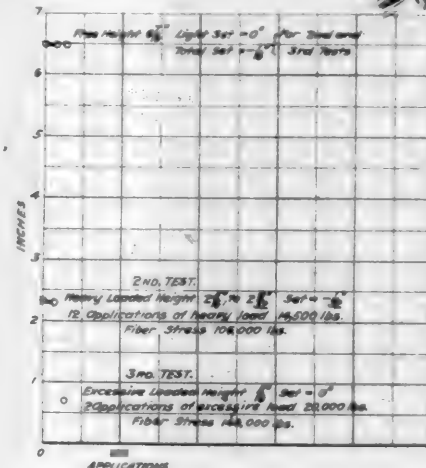 7
Free Height Light Set = 0" (For 2nd and
Total Set 3rd Tests
6
5
4
3
INCHES
2ND. TEST.
Heavy Loaded Height to Set =
12 Applications of heavy load 14,500 lbs.
2
Fiber Stress lbs.
3RD. TEST.
1
Excessive Loaded Height Set = 0"
2 Applications of excessive load 20,000 lbs.
Fiber Stress lbs.
0
0
APPLICATIONS